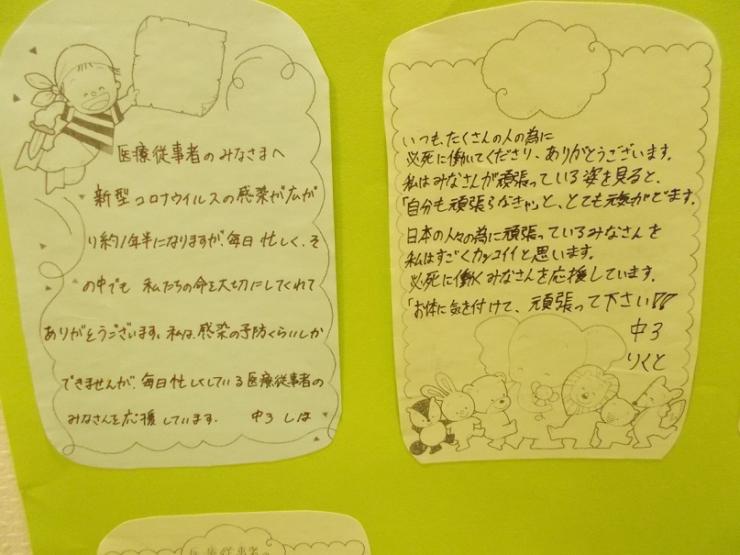 医療従事者のみなさまへ
新型コロナウイルスの感染が広が
り約1年半になりますが、毎日忙しく、そ
の中でも私たちの命を大切にしてくれて
ありがとうございます。私は、感染の予防くらいしか
できませんが、毎日忙しくしている医療従事者の
みなさんを応援しています。 中3 しほ
いつも、たくさんの人の為に
必死に働いてくださり、ありがとうございます。
私はみなさんが頑張っている姿を見ると、
「自分も頑張らなきゃッと、とても元気がでます。
日本の人々の為に頑張っているみなさんを
私はすごくカッコイイと思います。
必死に働くみなさんを応援しています。
「お体に気を付けて、頑張って下さい!!
中3
りくと
医療従事者へ